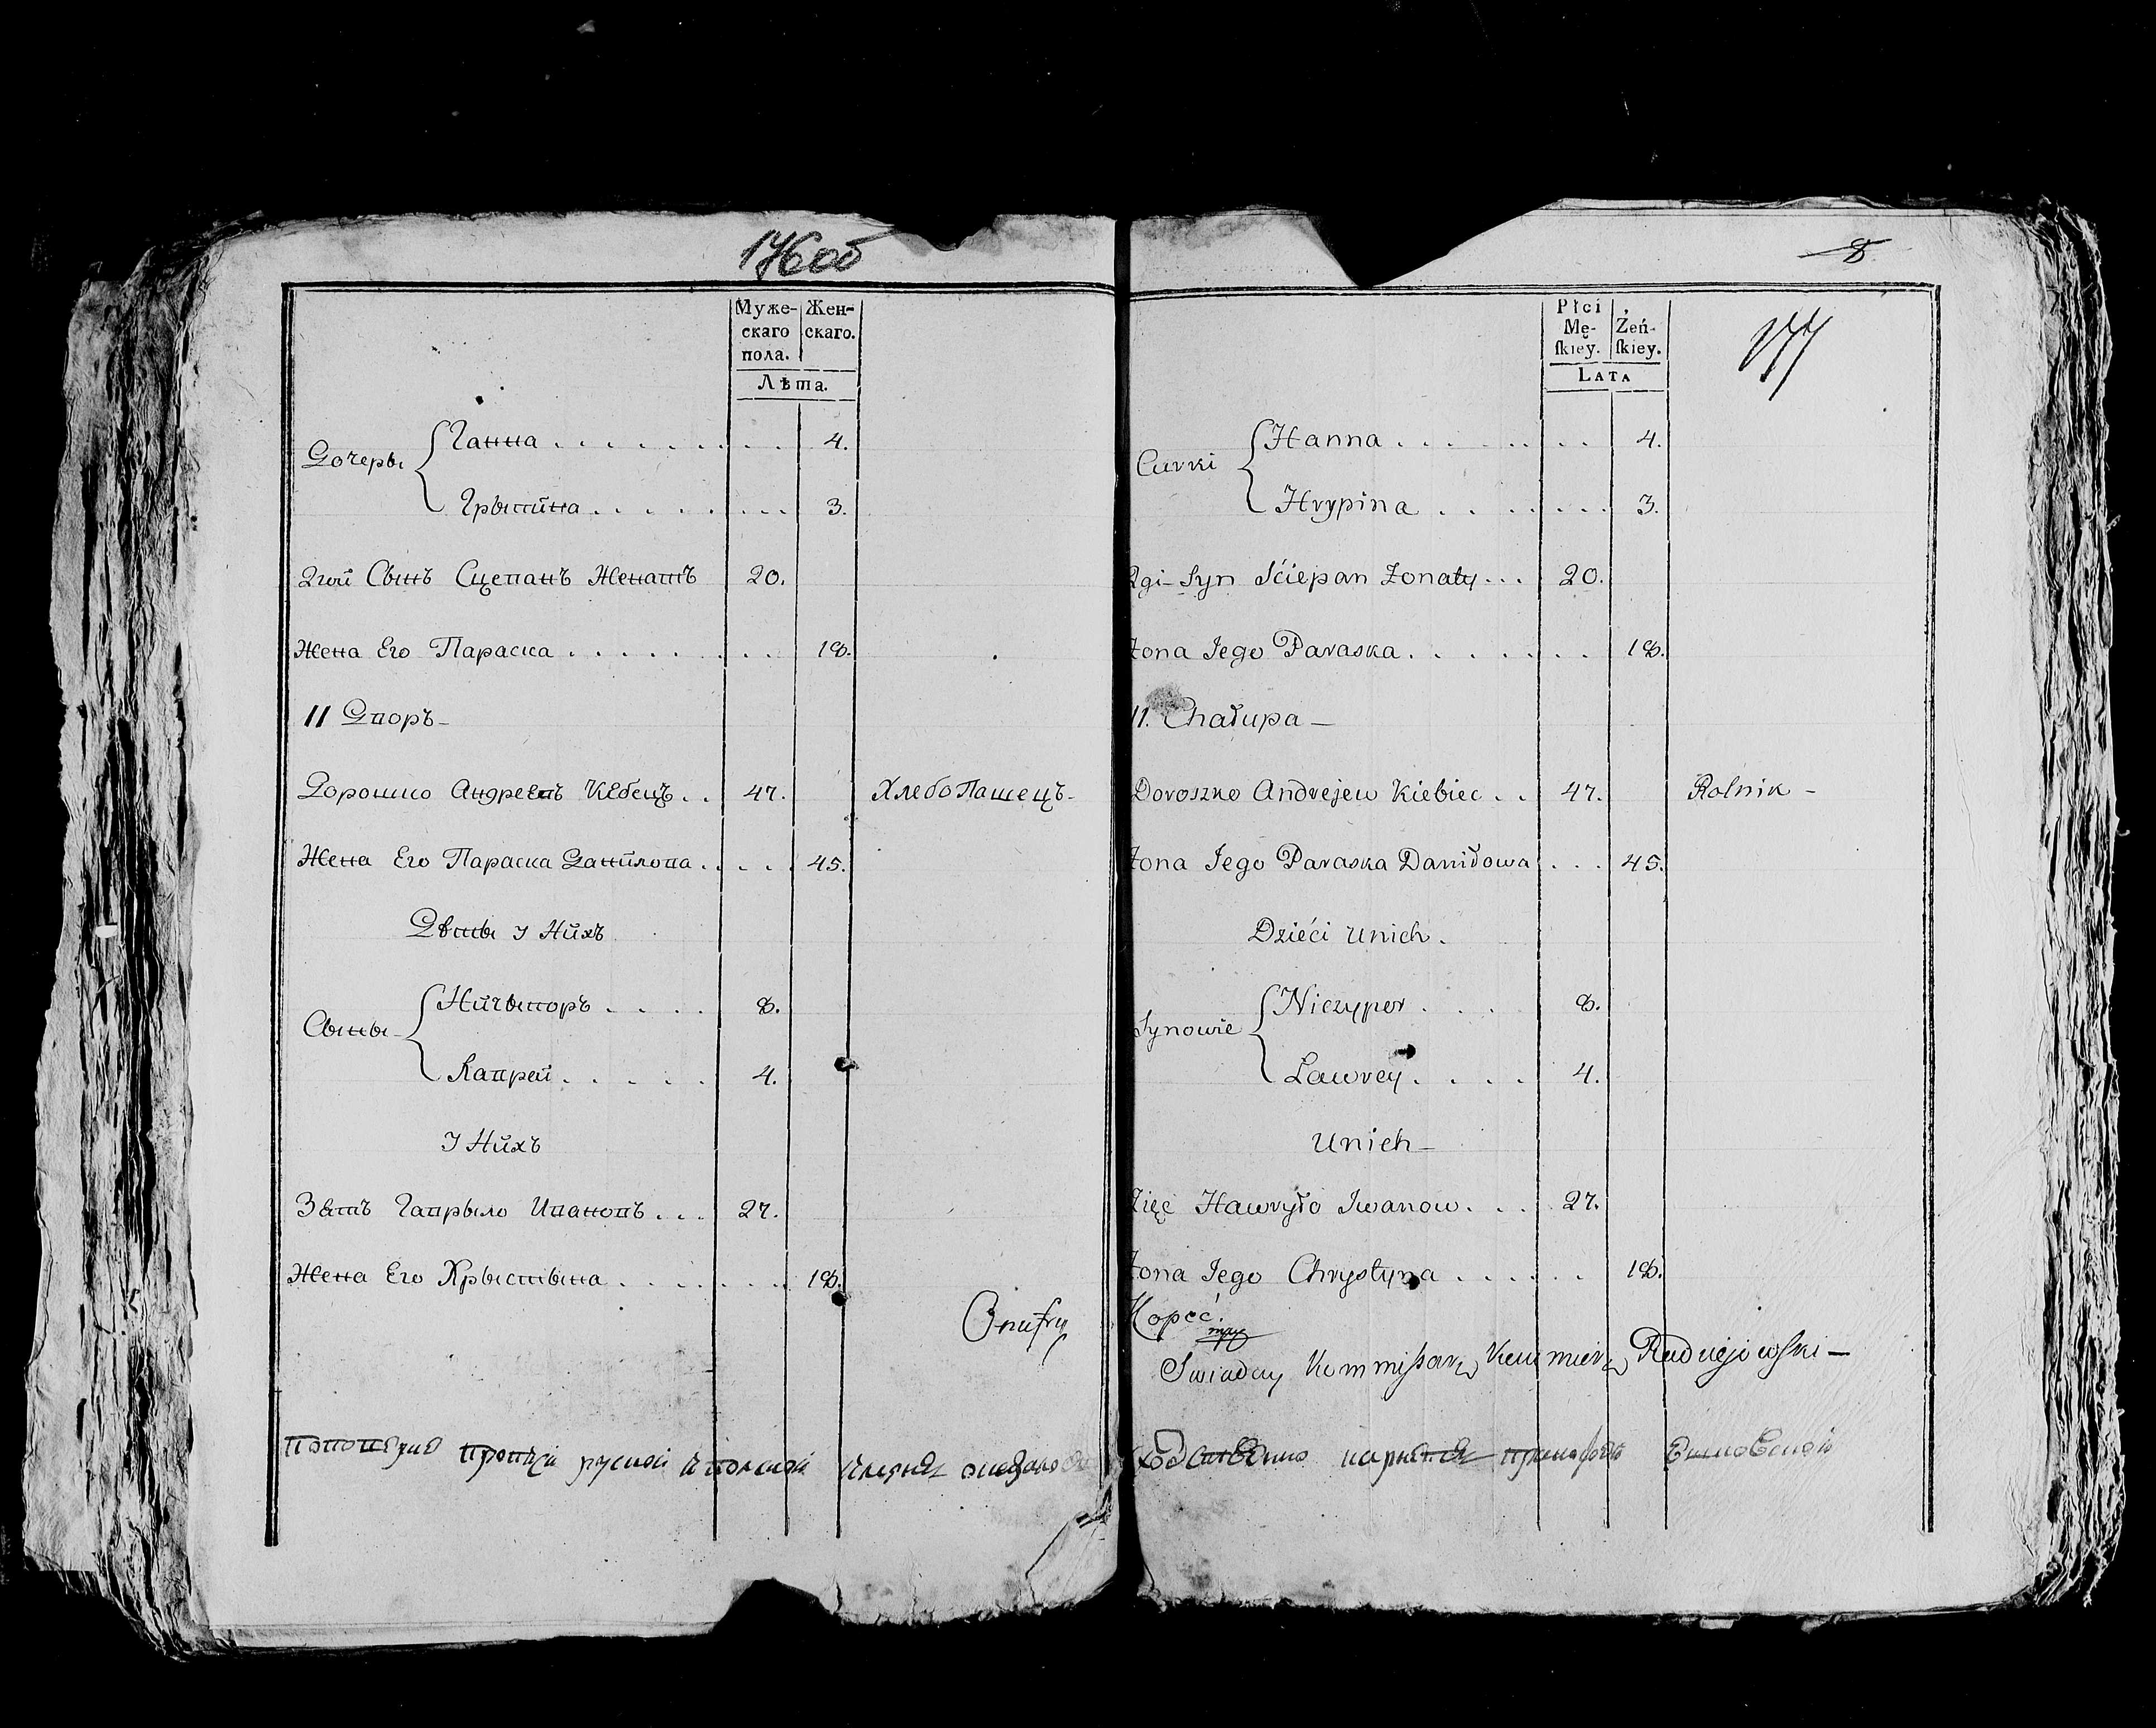 176об
Муже- Жен-
скаго скаго.
пола.
Лѣта.
Дочеры { Ганна . . . . . . . . . 4.
Грыпина . . . . . . . . 3.
2гой Сынъ Сцепанъ Женатъ 20.
Жена Его Параска . . . . . . . . . 18.
11 Дворъ –
Дорошко Андреевъ Кебецъ . . 47. ХлебоПашецъ –
Жена Его Параска Данилова . . . . . 45.
Дѣты У Нихъ
Сыны { Ничыпоръ . . . . 8.
Лаврей . . . . . 4.
У Нихъ
Зять Гаврыло Ивановъ . . . 27.
Жена Его Хрыстына . . . . . . . . 18.
Onufry
8
177
Płci
Mę- Żeń-
ſkiey. ſkiey.
LATA
Curki { Hanna . . . . . . . . 4.
Hrypina . . . . . . . 3.
2gi – Syn Sciepan Żonaty . . . 20.
Żona Jego Paraska . . . . . . . . 18.
11. Chałupa –
Doroszko Andrejew Kiebiec . . 47. Rolnik –
Żona Jego Paraska Daniłowa . . . 45.
Dzieći unich .
Synowie { Niczyper . . . . 8.
Lawrey . . . . 4.
Unich –
Zięć Hawryło Iwanow . . . 27.
Żona Jego Chrystyna . . . . . . 18.
Kopeć. mpp
Swiadczy Kommiſsarz Radziejowſki –
руской